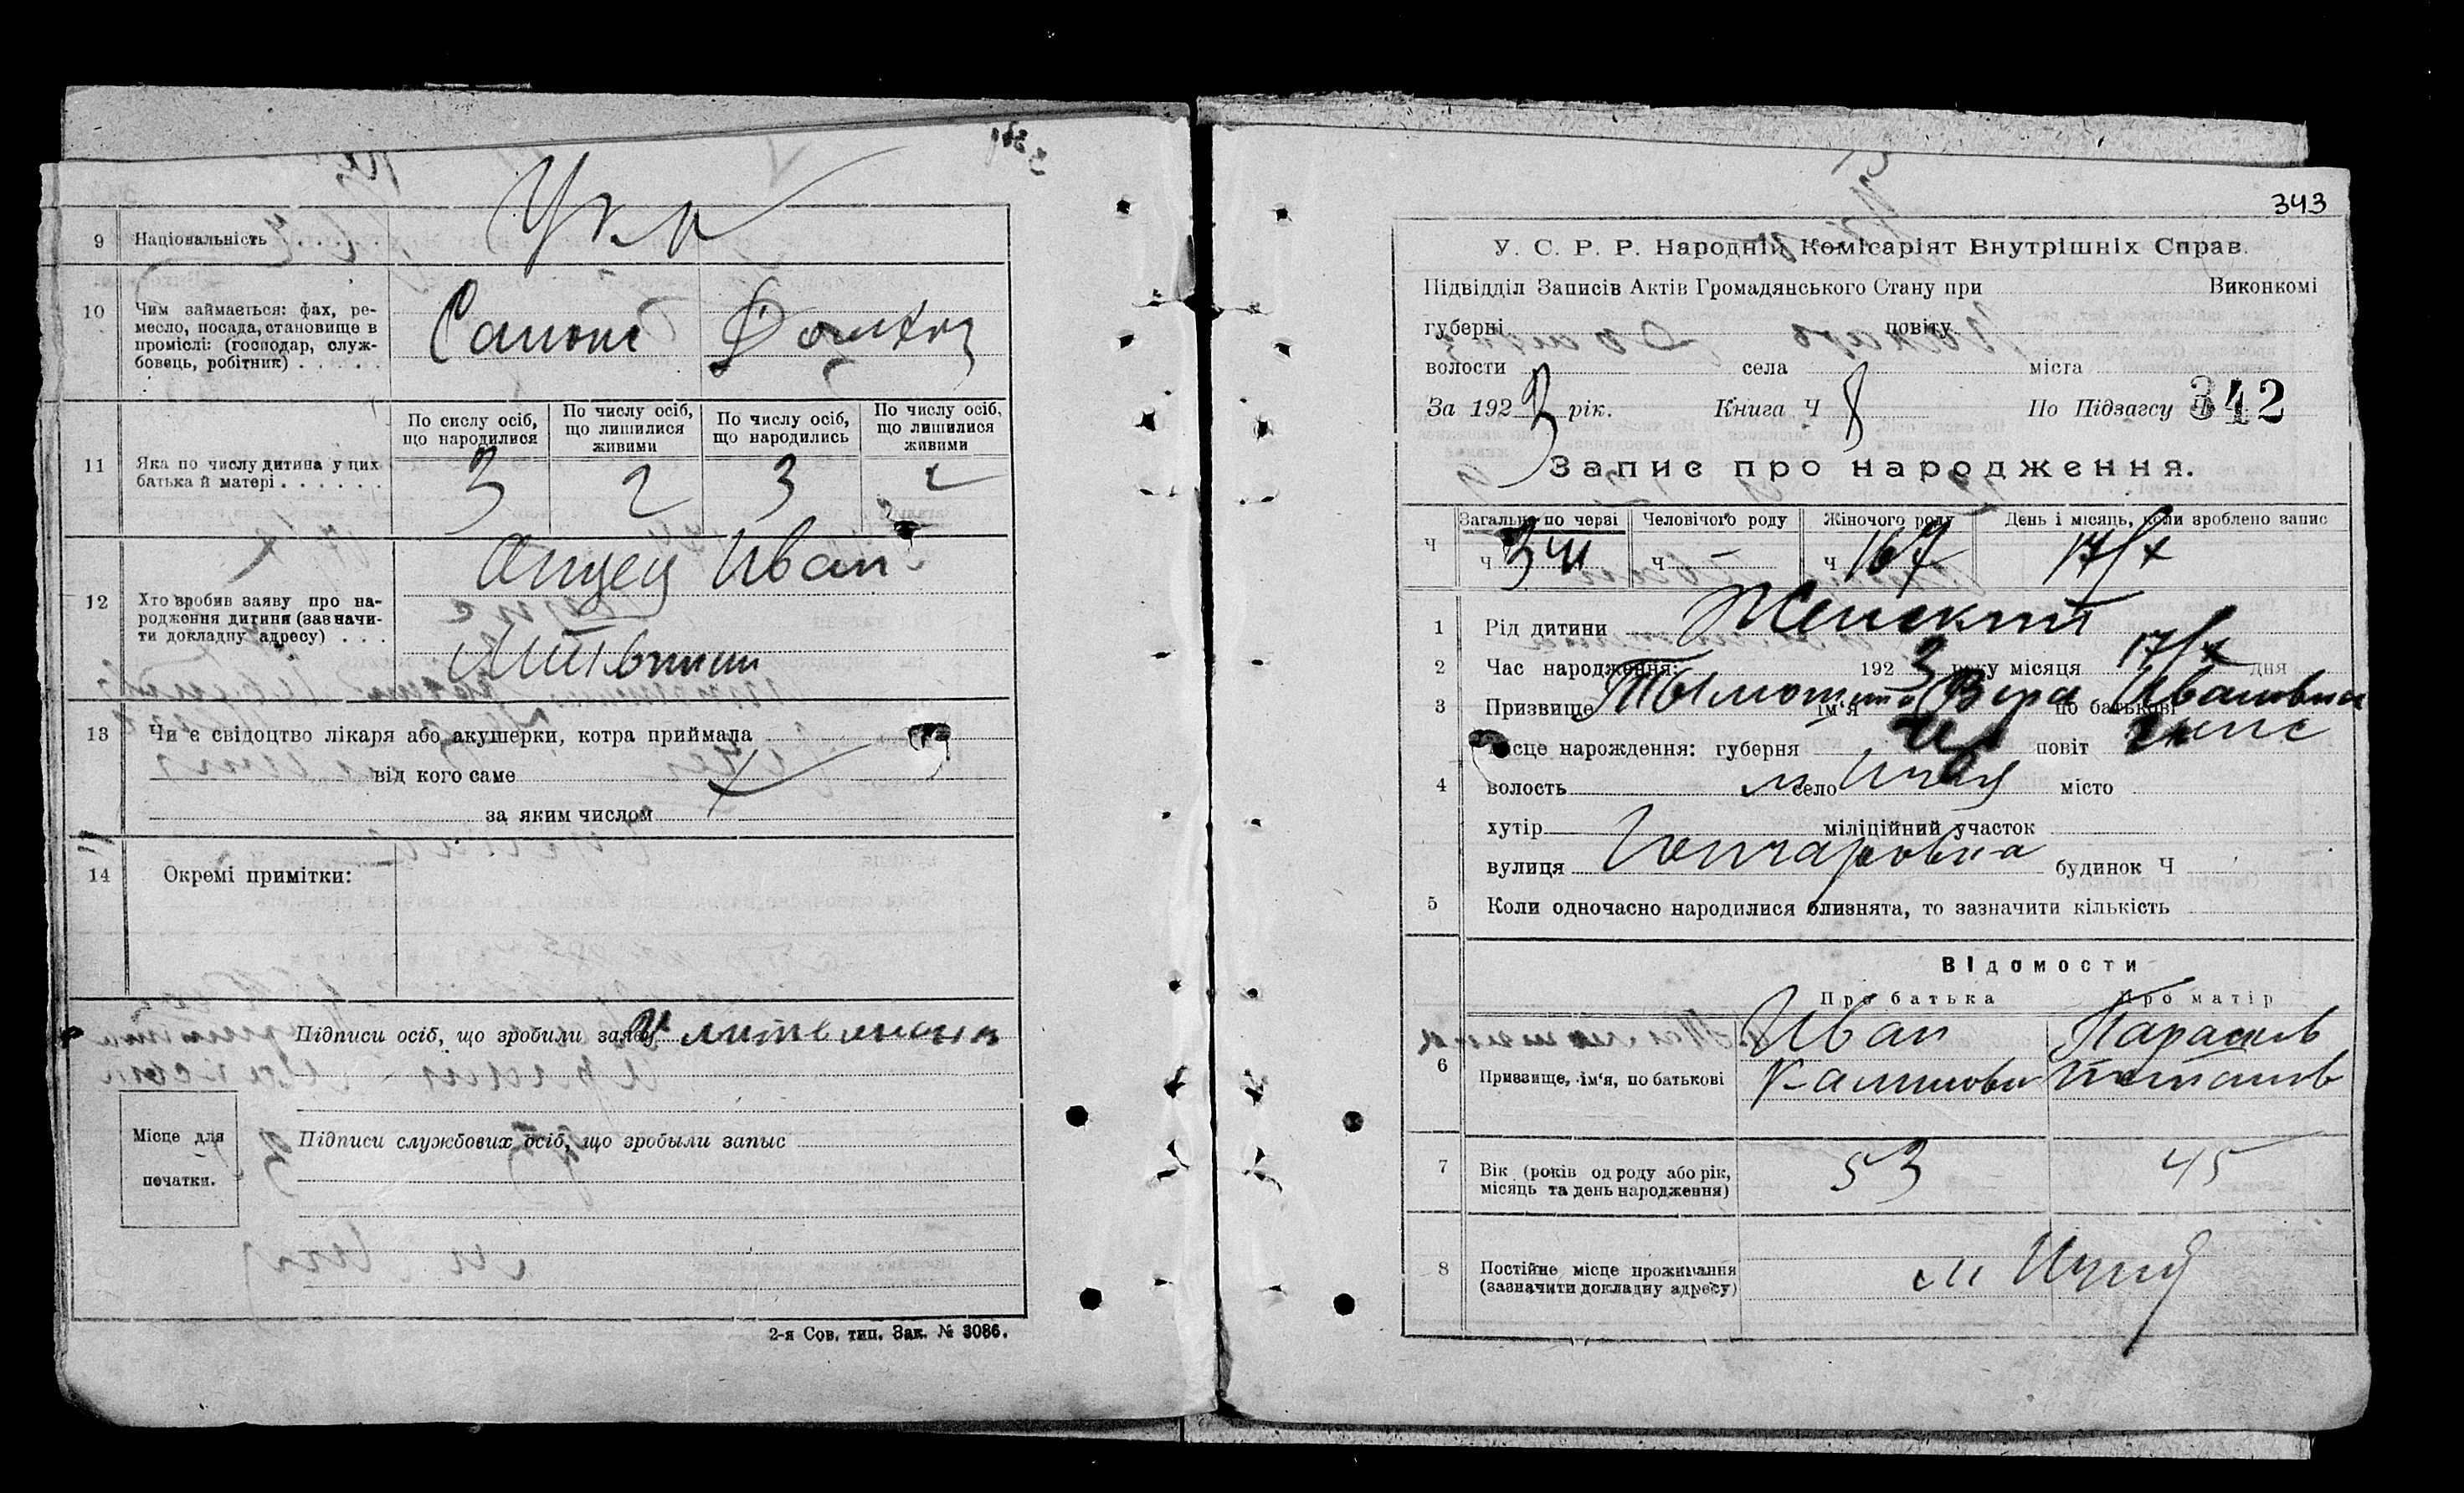 9 Національність . . . . . Укр
10 Чим займається: фах, ре-
месло, посада, становище в
промислі: (господар, служ-
бовець, робітник) . . . . .
Сапож Домхоз
По сислу осіб, що народилися
По числу осіб, що лишилися живими
По числу осіб, що народились
По числу осіб, що лишилися живими
11 Яка по числу дитина у цих
батька й матері . . . . . .
3 2 3 2
12 Хто зробив заяву про на-
родження дитини (зазначи-
ти докладну адресу) . . .
Отец Иван
Литвинин
13 Чи є свідоцтво лікаря або акушерки, котра приймала
від кого саме
за яким числом
14 Окремі примітки:
Підписи осіб, що зробили заяву И литвинин
Місце для
печатки.
Підписи службових осіб, що зробыли запыс
2-я Сов. тип. Зак. № 3086.
343
У. С. Р. Р. Народній Комісаріят Внутрішніх Справ.
Підвідділ Записів Актів Громадянського Стану при Виконкомі
губерні повіту
волости села міста
За 1923 рік. Книга Ч 8 По Підзагсу Ч 342
Запис про народження.
Загальне по черві Человічого роду Жіночого роду День і місяць, коли зроблено запис
Ч ч 341 ч ч 167 17/X
1 Рід дитини Женский
2 Час народження: 1923 року місяця 17/X дня
3 Призвище ім'я Вера по батькові Ивановна
4 Місце нарождення: губерня повіт
волость м село Ичня місто
хутір міліційний участок
вулиця Гончаровка будинок Ч
5 Коли одночасно народилися близнята, то зазначити кількість
Відомости
Про батька Про матір
6 Призвище, ім'я, по батькові
Иван Параск
Калинови Потапов
7 Вік (років од роду або рік,
місяць та день народження)
53 45
8 Постійне місце проживання
(зазначити докладну адресу)
м Ичня